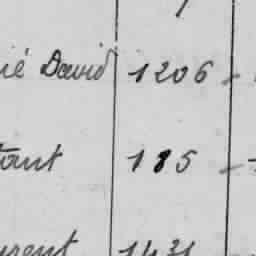 ié David 1206 -
tant 185 -
urent 1431